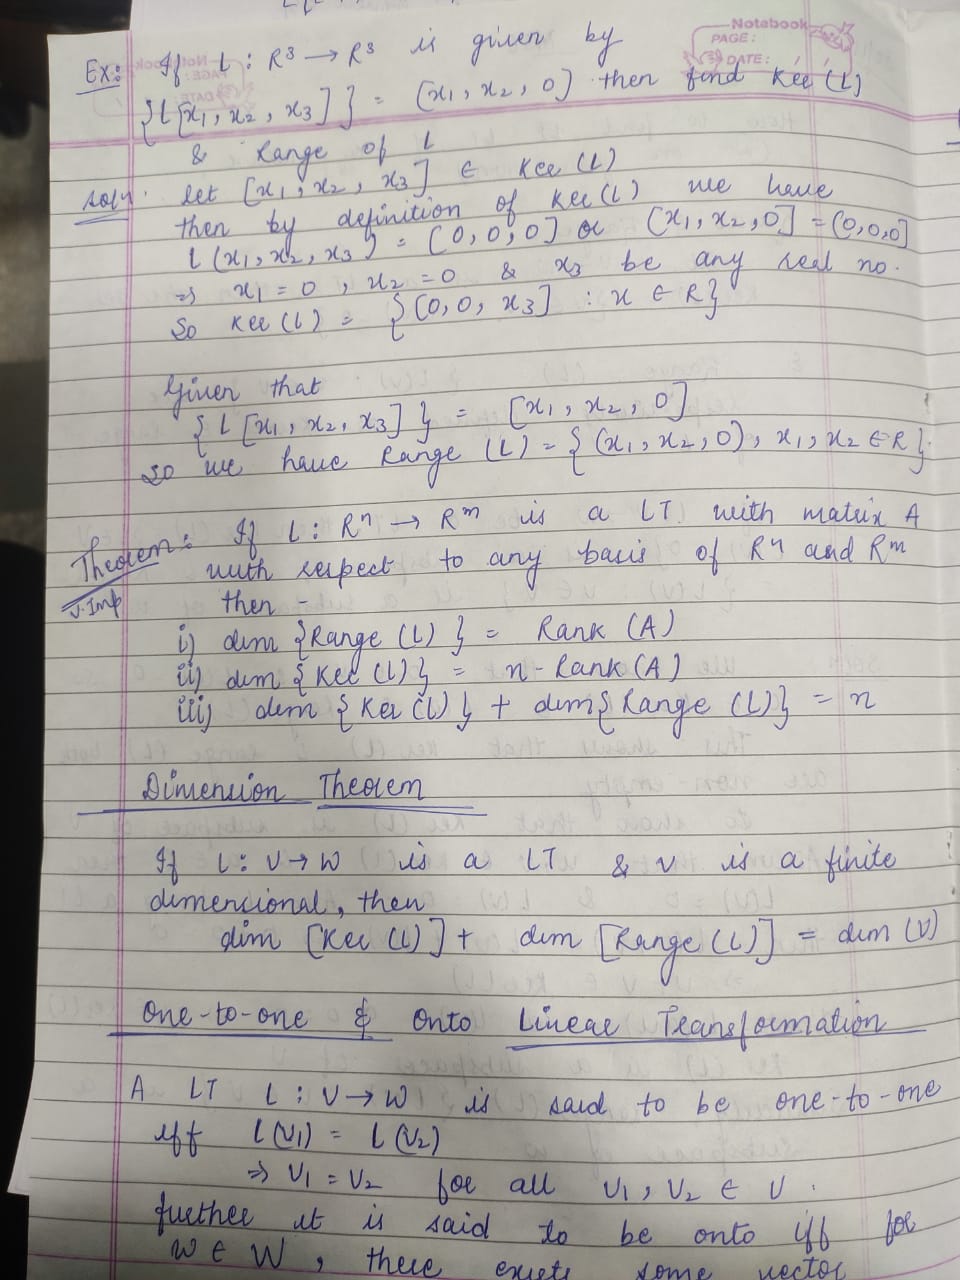 Notebook
PAGE:
DATE:
Ex: If L : R³ → R³ is given by
{L[x₁, x₂, x₃]} = [x₁, x₂, 0] then find Ker(L)
& Range of L
Soln. let [x₁, x₂, x₃] ∈ Ker(L)
then by definition of Ker(L) we have
L(x₁, x₂, x₃) = [0,0,0] or [x₁, x₂, 0] = (0,0,0]
⇒ x₁ = 0, x₂ = 0 & x₃ be any real no.
So Ker(L) = {[0, 0, x₃] : x ∈ R}
Given that
{L[x₁, x₂, x₃]} = [x₁, x₂, 0]
So we have Range (L) = {(x₁, x₂, 0), x₁, x₂ ∈ R}
Theorem: If L : Rⁿ → Rᵐ is a LT with matrix A
V.Imp with respect to any basis of Rⁿ and Rᵐ
then -
i) dim {Range (L)} = Rank (A)
ii) dim {Ker (L)} = n - Rank(A)
iii) dim {Ker (L)} + dim{Range (L)} = n
Dimension Theorem
If L: V → W is a LT & V is a finite
dimencional, then
dim [Ker (L)] + dim [Range (L)] = dim (V)
One-to-one & Onto Linear Transformation
A LT L : V → W is said to be one-to-one
iff L(V₁) = L(V₂)
⇒ V₁ = V₂ for all V₁, V₂ ∈ V.
further it is said to be onto iff for
w ∈ W, there exists some vector